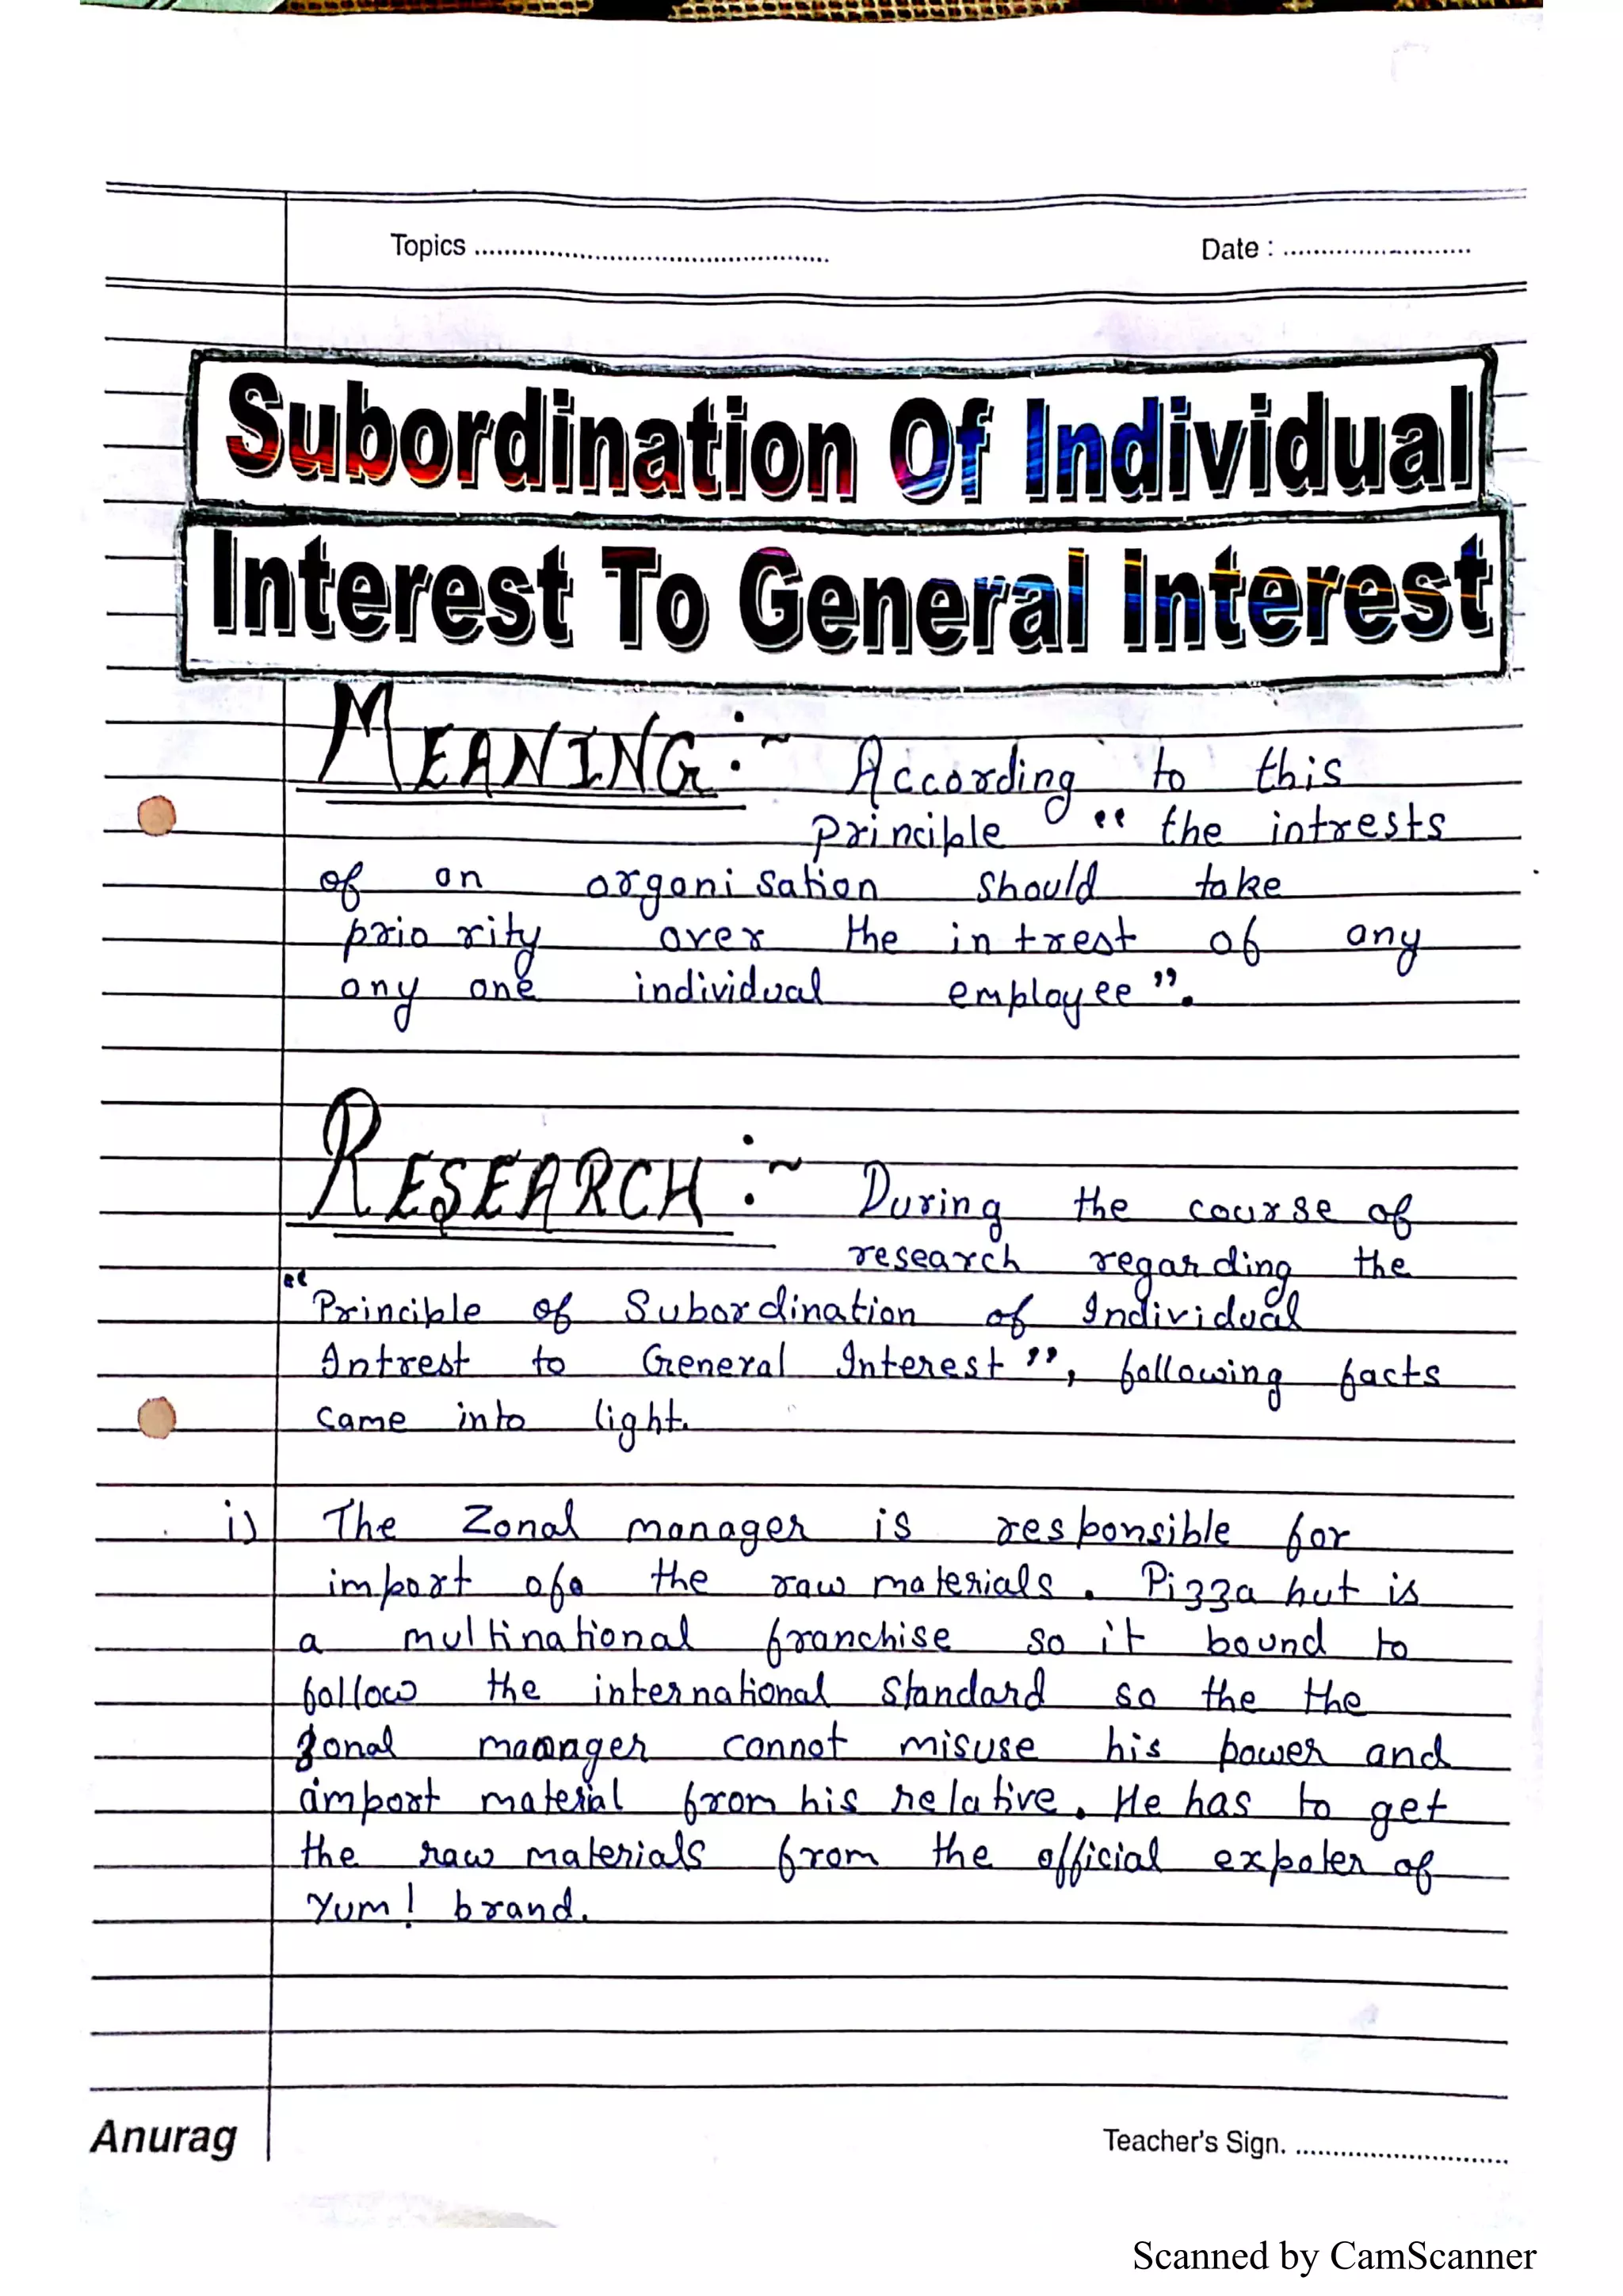 Topics ............................................... Date : .........................
Subordination Of Individual
Interest To General Interest
MEANING :~ According to this
principle “ the intrests
of an organi sation should take
prio rity over the in trest of any
any one individual employee ”.
RESEARCH :~ During the course of
research regarding the
“ Principle of Subordination of Individual
Intrest to General Interest ”, following facts
came into light.
i) The Zonal manager is responsible for
import of the raw materials . Pizza hut is
a multinational franchise so it bound to
follow the international standard so the the
zonal manager cannot misuse his power and
import material from his relative. He has to get
the raw materials from the official expoter of
Yum! brand.
Anurag Teacher's Sign. .............................
Scanned by CamScanner